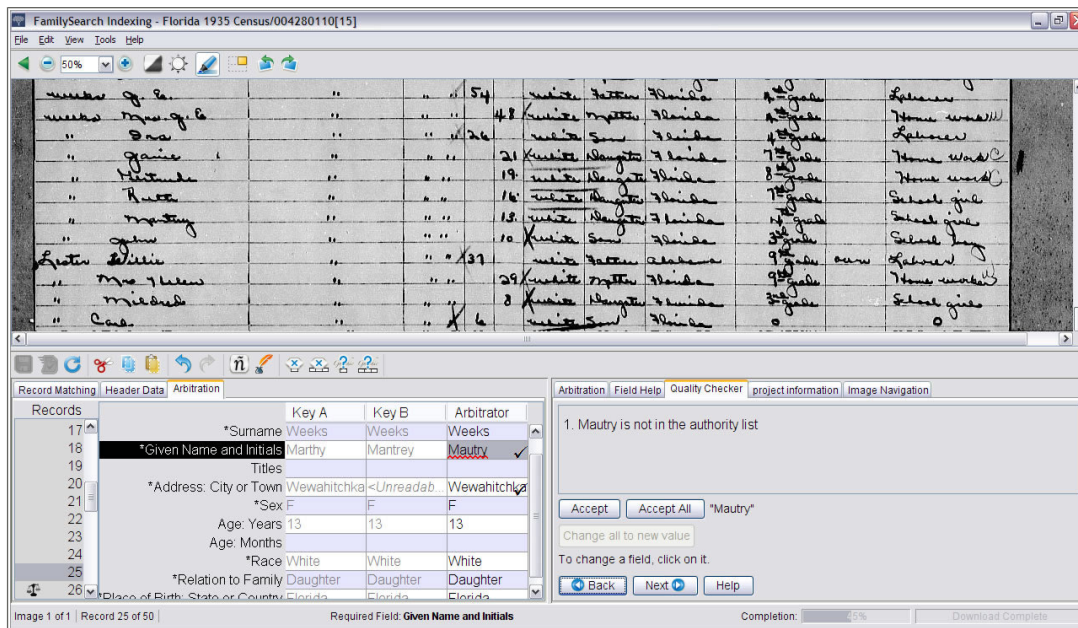 FamilySearch Indexing - Florida 1935 Census/004280110[15]
File Edit View Tools Help
50%
weeks J. E. " " " 54 white Father Florida 4th grade Laborer
weeks Mrs. J. E " " " 48 white Mother Florida 4th grade Home work W
" Ira " " " 26 white Son Florida 4th grade Laborer
" Janie " " " 21 white Daughter Florida 7th grade Home work C
" Gertrude " " " 19 white Daughter Florida 8th grade Home work C
" Ruth " " " 16 white Daughter Florida 7th grade School girl
" " " " 13 white Daughter Florida grade School girl
" John " " " 10 white Son Florida 3rd grade School boy
Lester Willie " " " 37 white Father Alabama 9th grade own Laborer
" Mrs " " " 29 white Mother Florida 9th grade Home worker
" Mildred " " " 8 white Daughter Florida grade School girl
" Carl " " " 6 white Son Florida 0 0
Record Matching Header Data Arbitration
Records
17
18
19
20
21
22
23
24
25
26
Key A Key B Arbitrator
*Surname Weeks Weeks Weeks
*Given Name and Initials Marthy Mantrey Mautry
Titles
*Address: City or Town Wewahitchka <Unreadab... Wewahitchka
*Sex F F F
Age: Years 13 13 13
Age: Months
*Race White White White
*Relation to Family Daughter Daughter Daughter
*Place of Birth: State or Country Florida Florida Florida
Arbitration Field Help Quality Checker project information Image Navigation
1. Mautry is not in the authority list
Accept Accept All "Mautry"
Change all to new value
To change a field, click on it.
Back Next Help
Image 1 of 1 Record 25 of 50 Required Field: Given Name and Initials Completion: 45% Download Complete